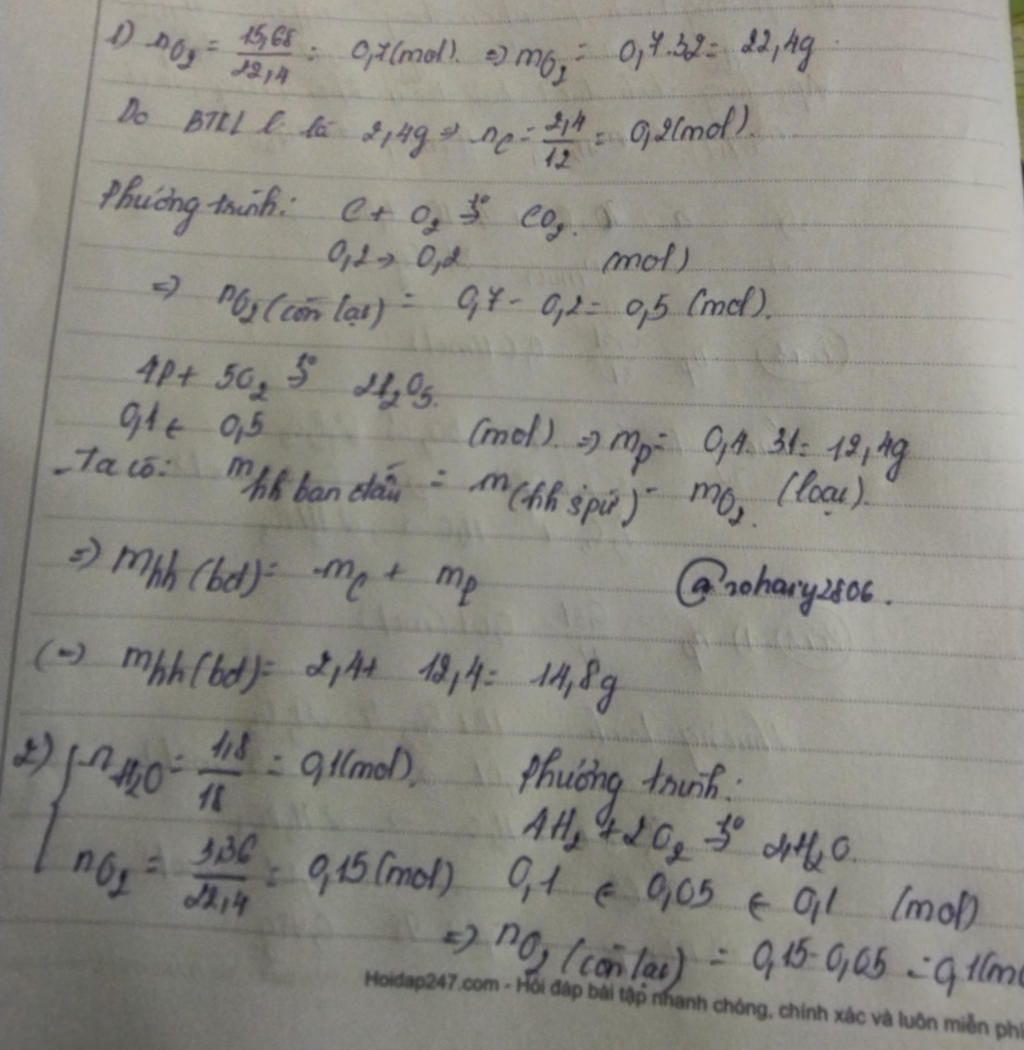 1) nO₂ = 15,68/22,4 = 0,7(mol). => mO₂ = 0,7.32 = 22,4g
Do BTKL C là 2,4g => nC = 2,4/12 = 0,2(mol).
Phương trình: C + O₂ t°→ CO₂.
0,2 → 0,2 (mol)
=> nO₂ (còn lại) = 0,7 - 0,2 = 0,5 (mol).
4P + 5O₂ t°→ 2P₂O₅.
0,4 ← 0,5 (mol). => mP = 0,4. 31 = 12,4g
- Ta có: mhh ban đầu = m(hh spứ) - mO₂ (loại).
=> mhh (bđ) = mC + mP @rohary2806.
(=) mhh (bđ) = 2,4 + 12,4 = 14,8g
2) { nH₂O = 1,8/18 = 0,1(mol). Phương trình:
4H₂ + 2O₂ t°→ 4H₂O.
nO₂ = 3,36/22,4 = 0,15(mol) 0,1 ← 0,05 ← 0,1 (mol)
=> nO₂ (còn lại) = 0,15 - 0,05 = 0,1(m
Hoidap247.com - Hỏi đáp bài tập nhanh chóng, chính xác và luôn miễn phí